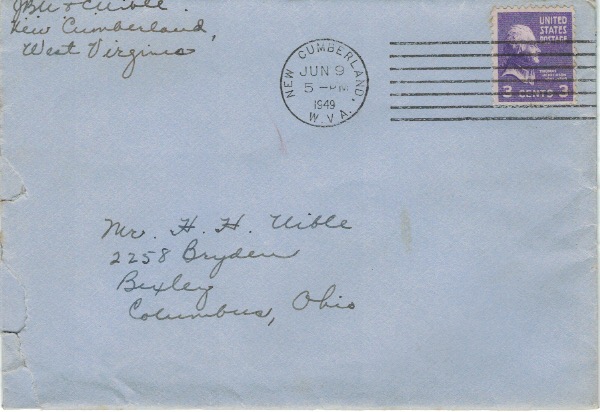 Uible.
New Cumberland,
West Virginia
NEW CUMBERLAND.
JUN 9
5 - PM
1949
W. VA.
UNITED
STATES
POSTAGE
3 CENTS 3
Mr. H. H. Uible
2258 Bryden
Bexley
Columbus, Ohio